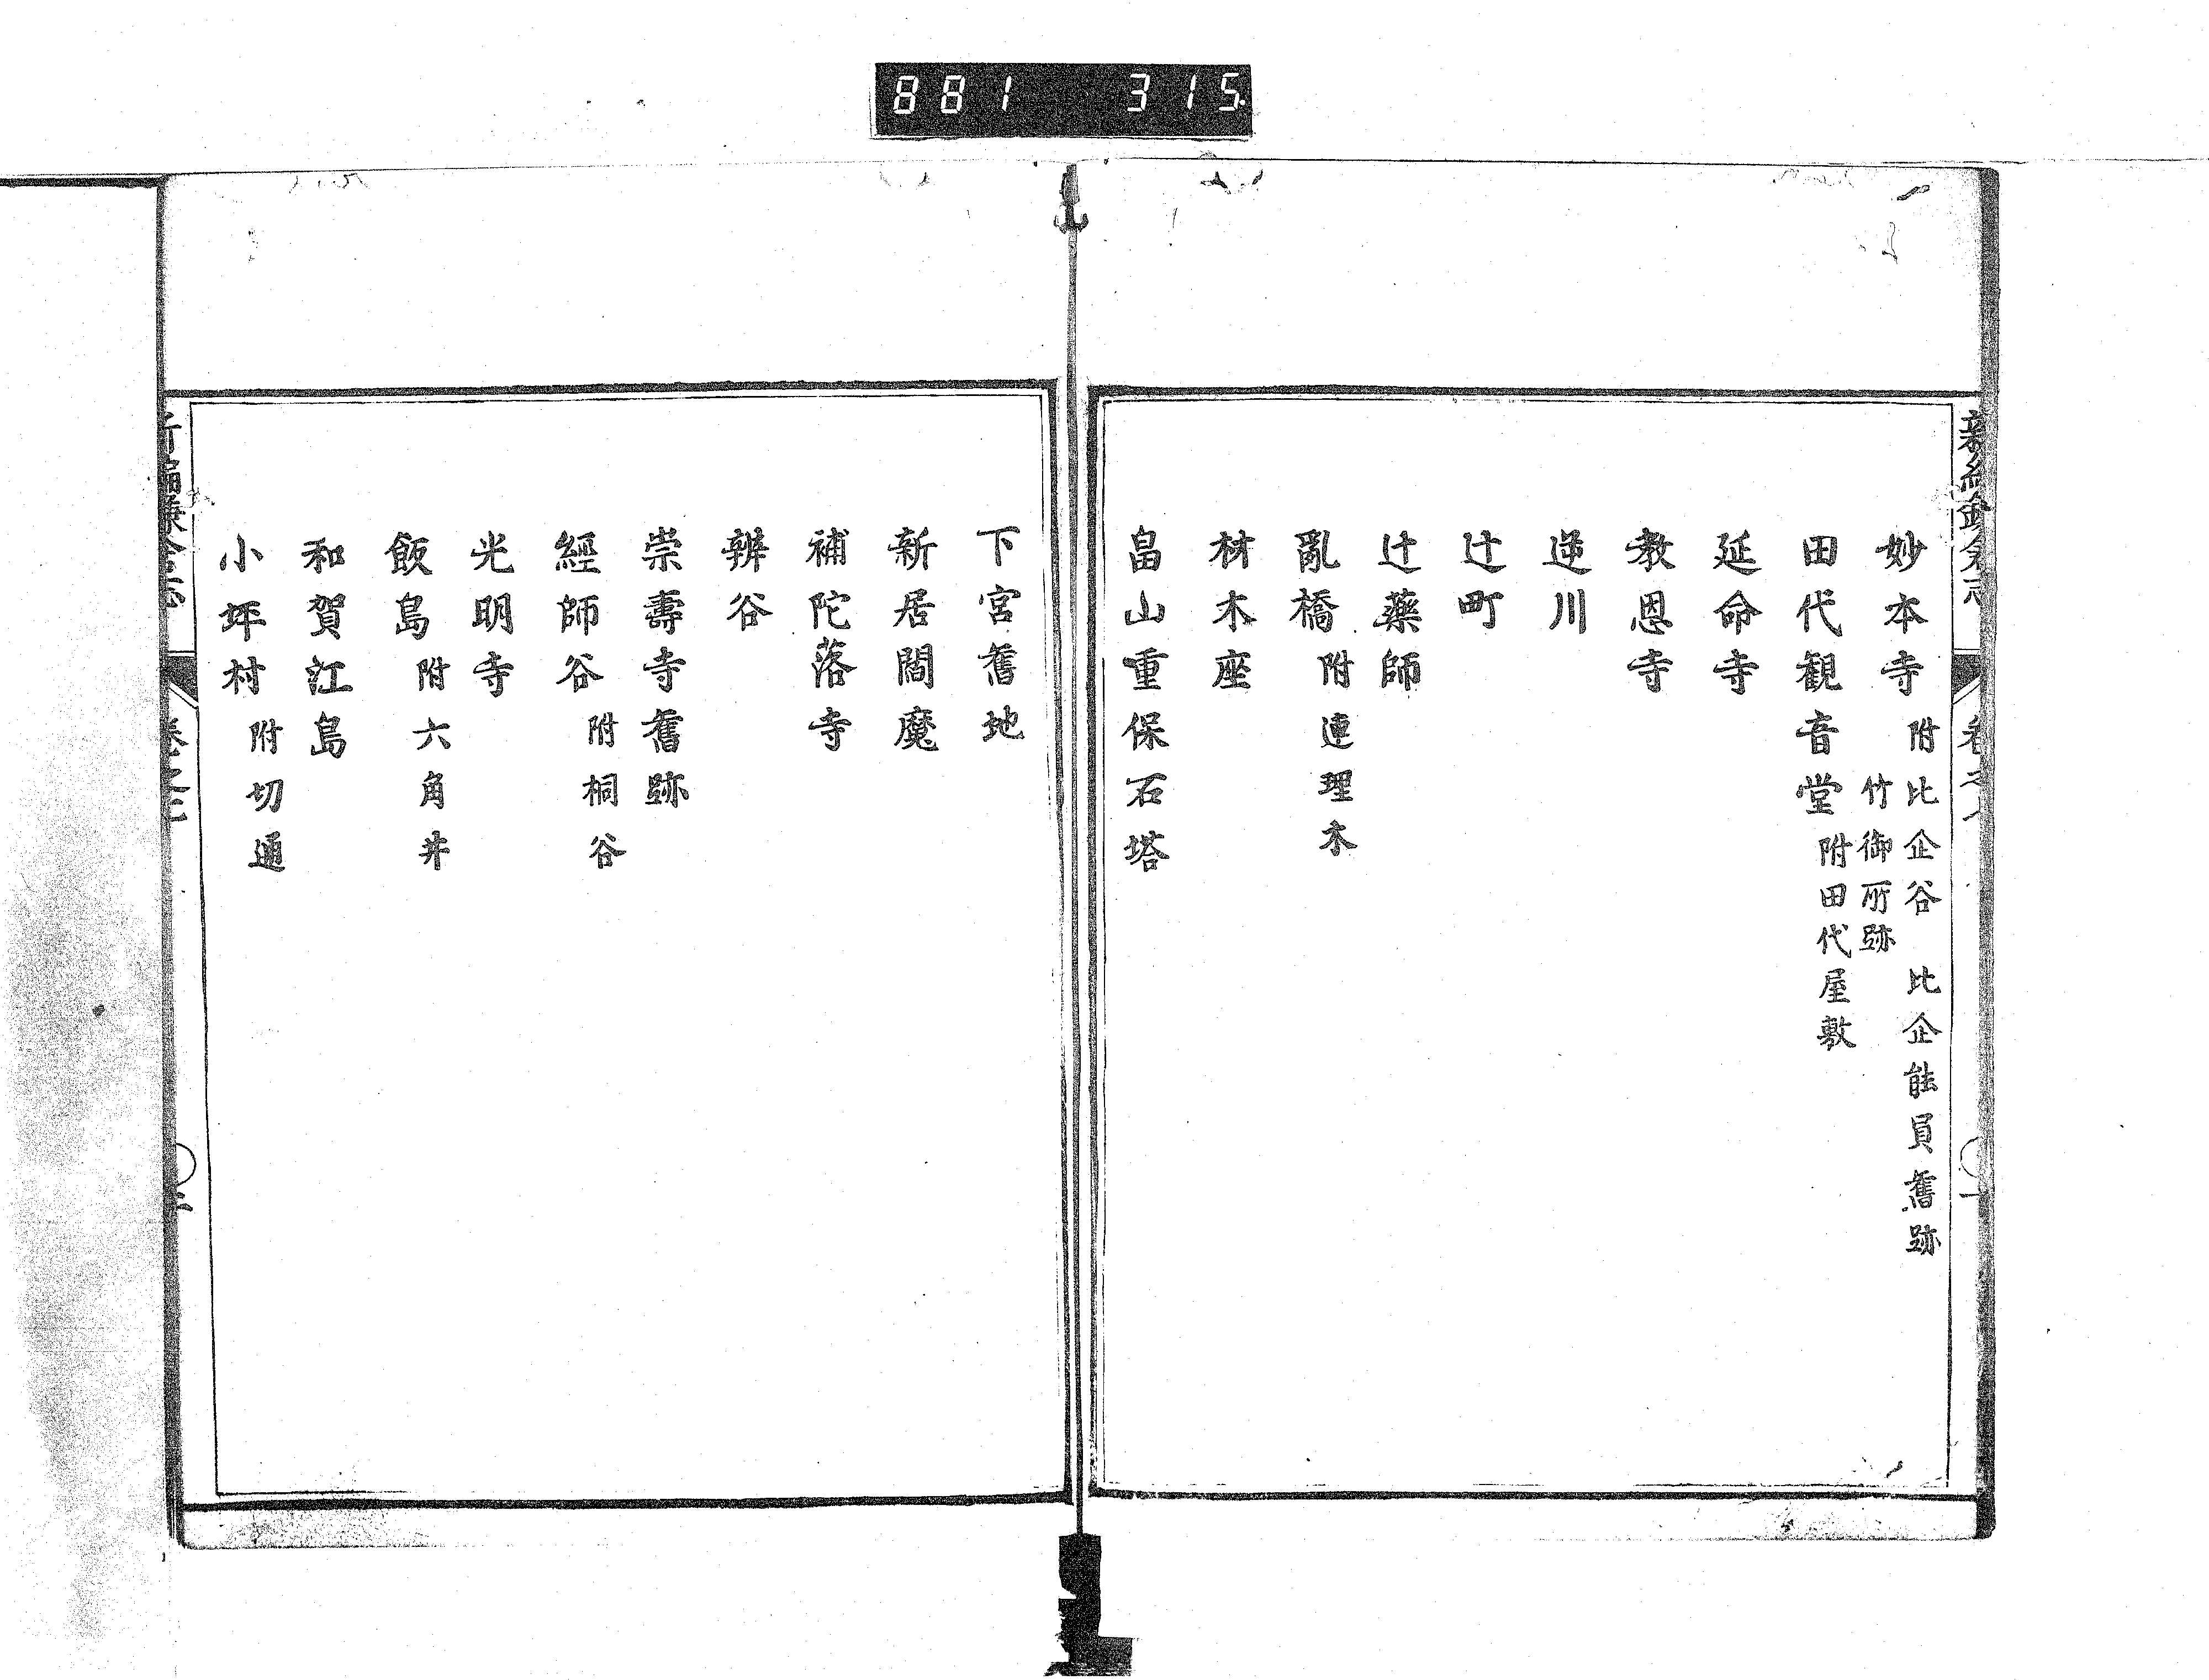 881 315
妙本寺 附比企谷 比企能員舊跡
竹御所跡
田代観音堂 附田代屋敷
延命寺
教恩寺
逆川
辻町
辻薬師
亂橋 附連理木
材木座
畠山重保石塔
下宮舊地
新居閻魔
補陀落寺
辨谷
崇壽寺舊跡
經師谷 附桐谷
光明寺
飯島 附六角井
和賀江島
小坪村 附切通